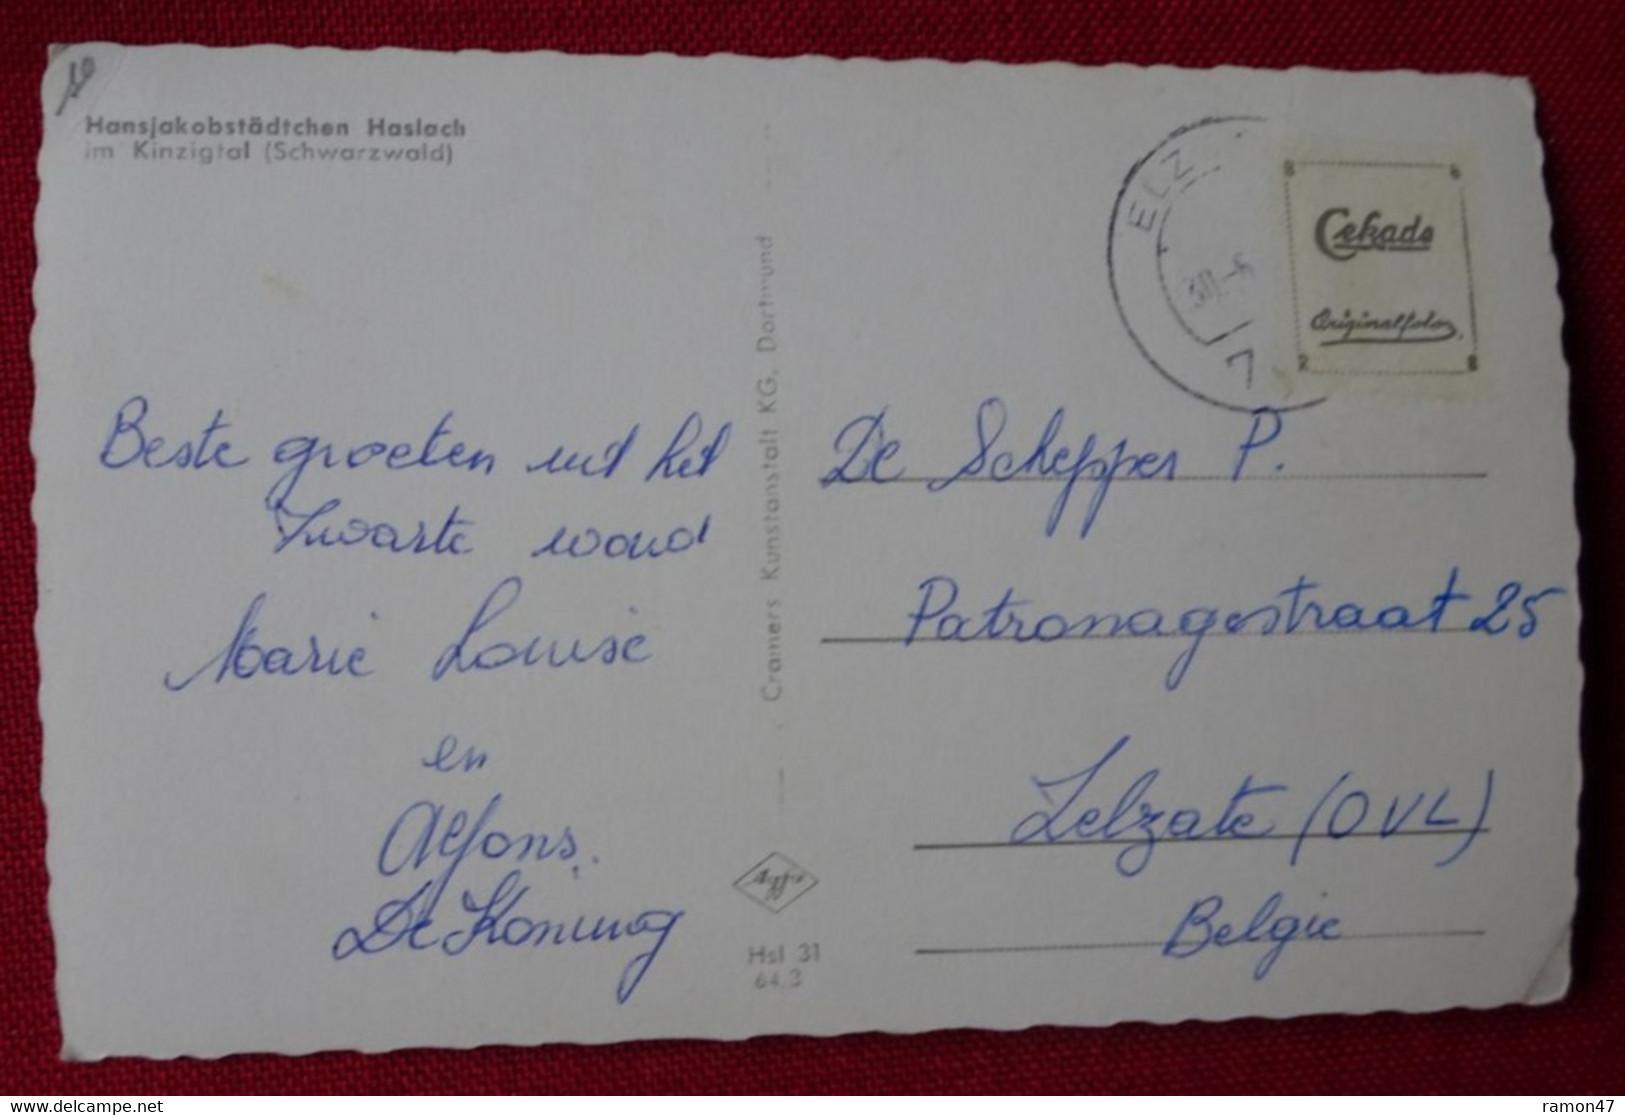 Hansjakobstädtchen Haslach
im Kinzigtal (Schwarzwald)
Beste groeten uit het
Zwarte woud
Marie Louise
en
Alfons.
De Koning
Cramers Kunstanstalt KG, Dortmund
Agfa
Hsl 31
64.3
ELZ
30.-6
7
Cekade
Originalfoto
De Schepper P.
Patronagestraat 25
Zelzate (OVL)
Belgie
www.delcampe.net
ramon47